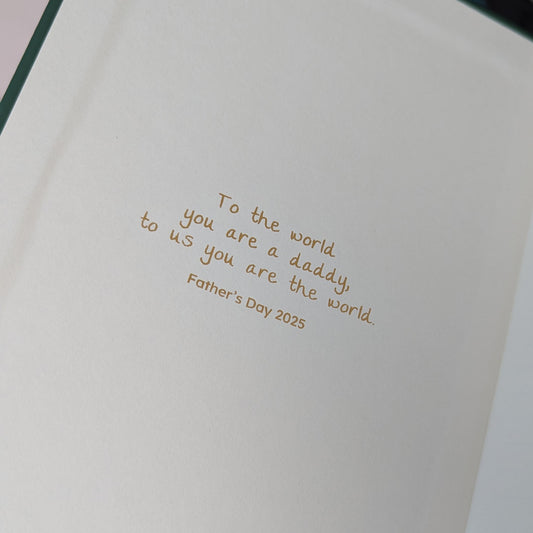 To the world
you are a daddy,
to us you are the world.
Father's Day 2025